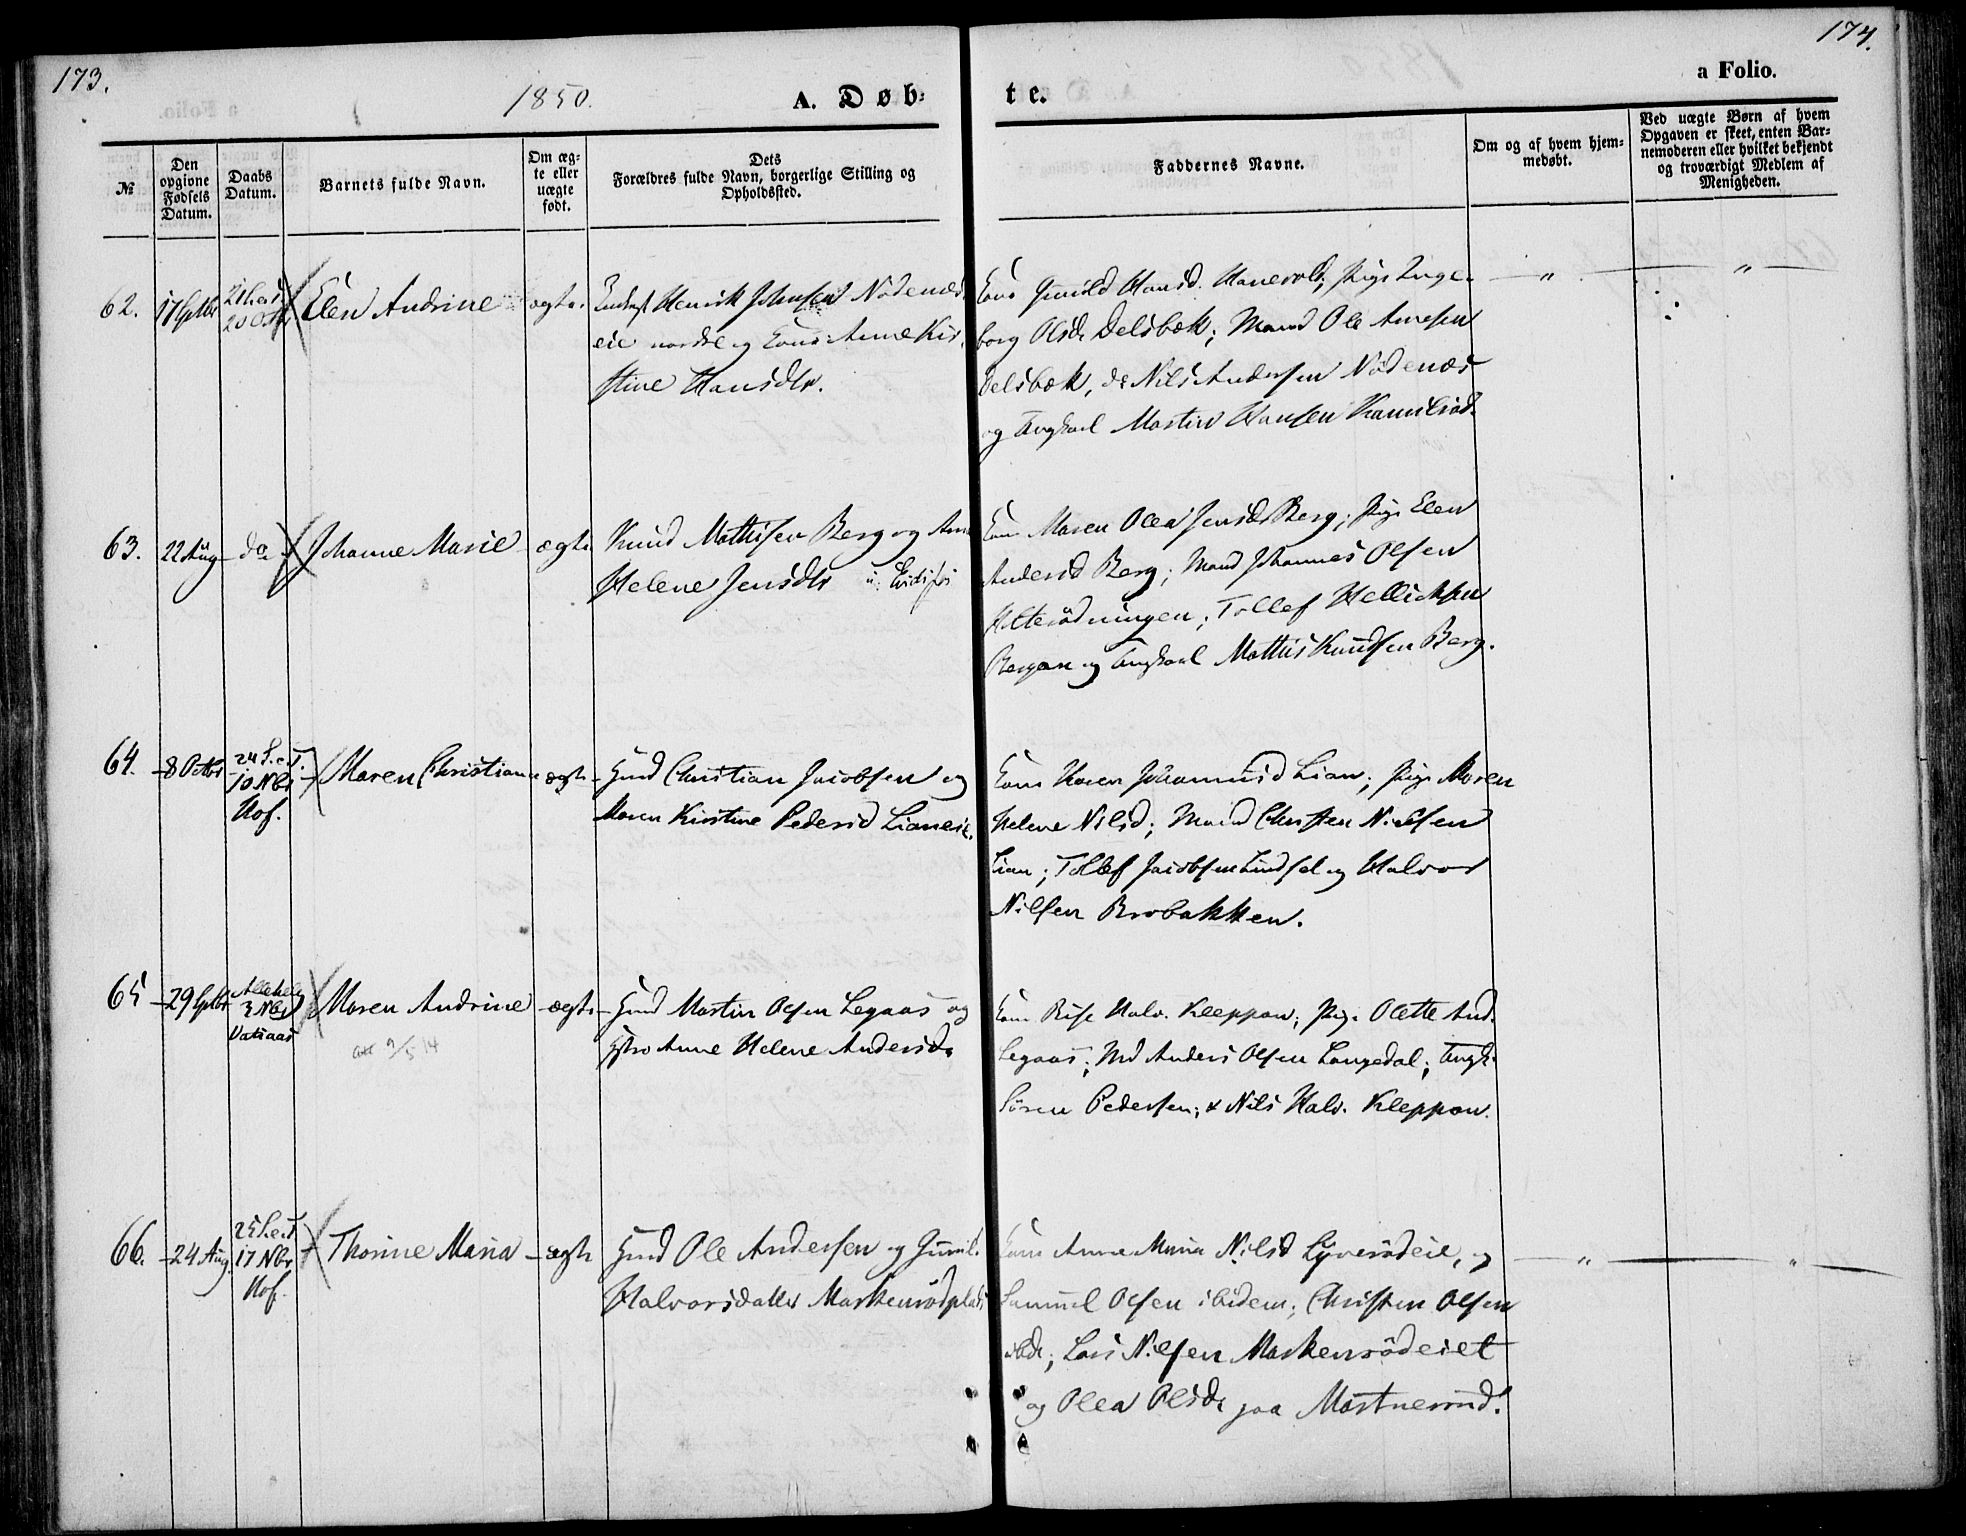 173.
1850.
A. Døb-
№
Den opgivne Fødsels Datum.
Daabs Datum.
Barnets fulde Navn.
Om ægte eller uægte født.
Dets
Forældres fulde Navn, borgerlige Stilling og Opholdssted.
62. 17 Septbr 20 Octbr Elen Andrine ægte. Henrik Johnsen Nödenæs
eie nordre og Kone Anne Kir-
stine Hansdtr.
63. 22 Aug do Johanne Marie ægte Knud Mathisen Berg og Anne
Helene Jensdtr
64. 8 Octbr 24 S.e.T. 10 Nbr Hof. Maren Christiane ægte Christian Jacobsen og
Maren Kirstine Pedersd Lianeie.
65 29 Septbr Allehelg 3 Nbr Maren Andrine ægte Martin Olsen Legaas og
Hstro Anne Helene Andersd.
9/5 14
66. 24 Aug. 25 S.e.T. 17 Nbr Hof. Thorine Maria ægte Ole Andersen og Gunild
Halvorsdatter Markenrödplads
174.
te.
a Folio.
Faddernes Navne.
Om og af hvem hjemmedøbt.
Ved uægte Børn af hvem Opgaven er skeet, enten Barnemoderen eller hvilket bekjendt og troværdigt Medlem af Menigheden.
Kone Gunild Hansd. Hanevold; Pige Inge-
borg Olsdr Delsbæk; Mand Ole Arnesen
Delsbæk, do Nils Andersen Nödenæs
og Ungkarl Martin Hansen
Kone Maren Olea Jensdr Berg; Pige Elen
Andersd Berg; Mand Johannes Olsen
Holterödningen; Tollef Helliksen
Bergan og Ungkarl Mathis Knudsen Berg.
Kone Karen Johannesd Lian; Pige Maren
Helene Nilsd; Mand Christen Nielsen
Lian; Tollef Jacobsen Lindsel og Halvor
Nilsen Brobakken.
Kone Halv. Kleppan; Pige Olette And.
Legaas; Md Anders Olsen Langedal; Ungk.
Sören Pedersen; & Nils Halv. Kleppan.
Kone Anne Maria Nilsd Lyverödeie, og
Samuel Olsen ibidem; Christen Olsen
ibd; Lars Nilsen Markenrödeiet
og Olea Olsdr paa